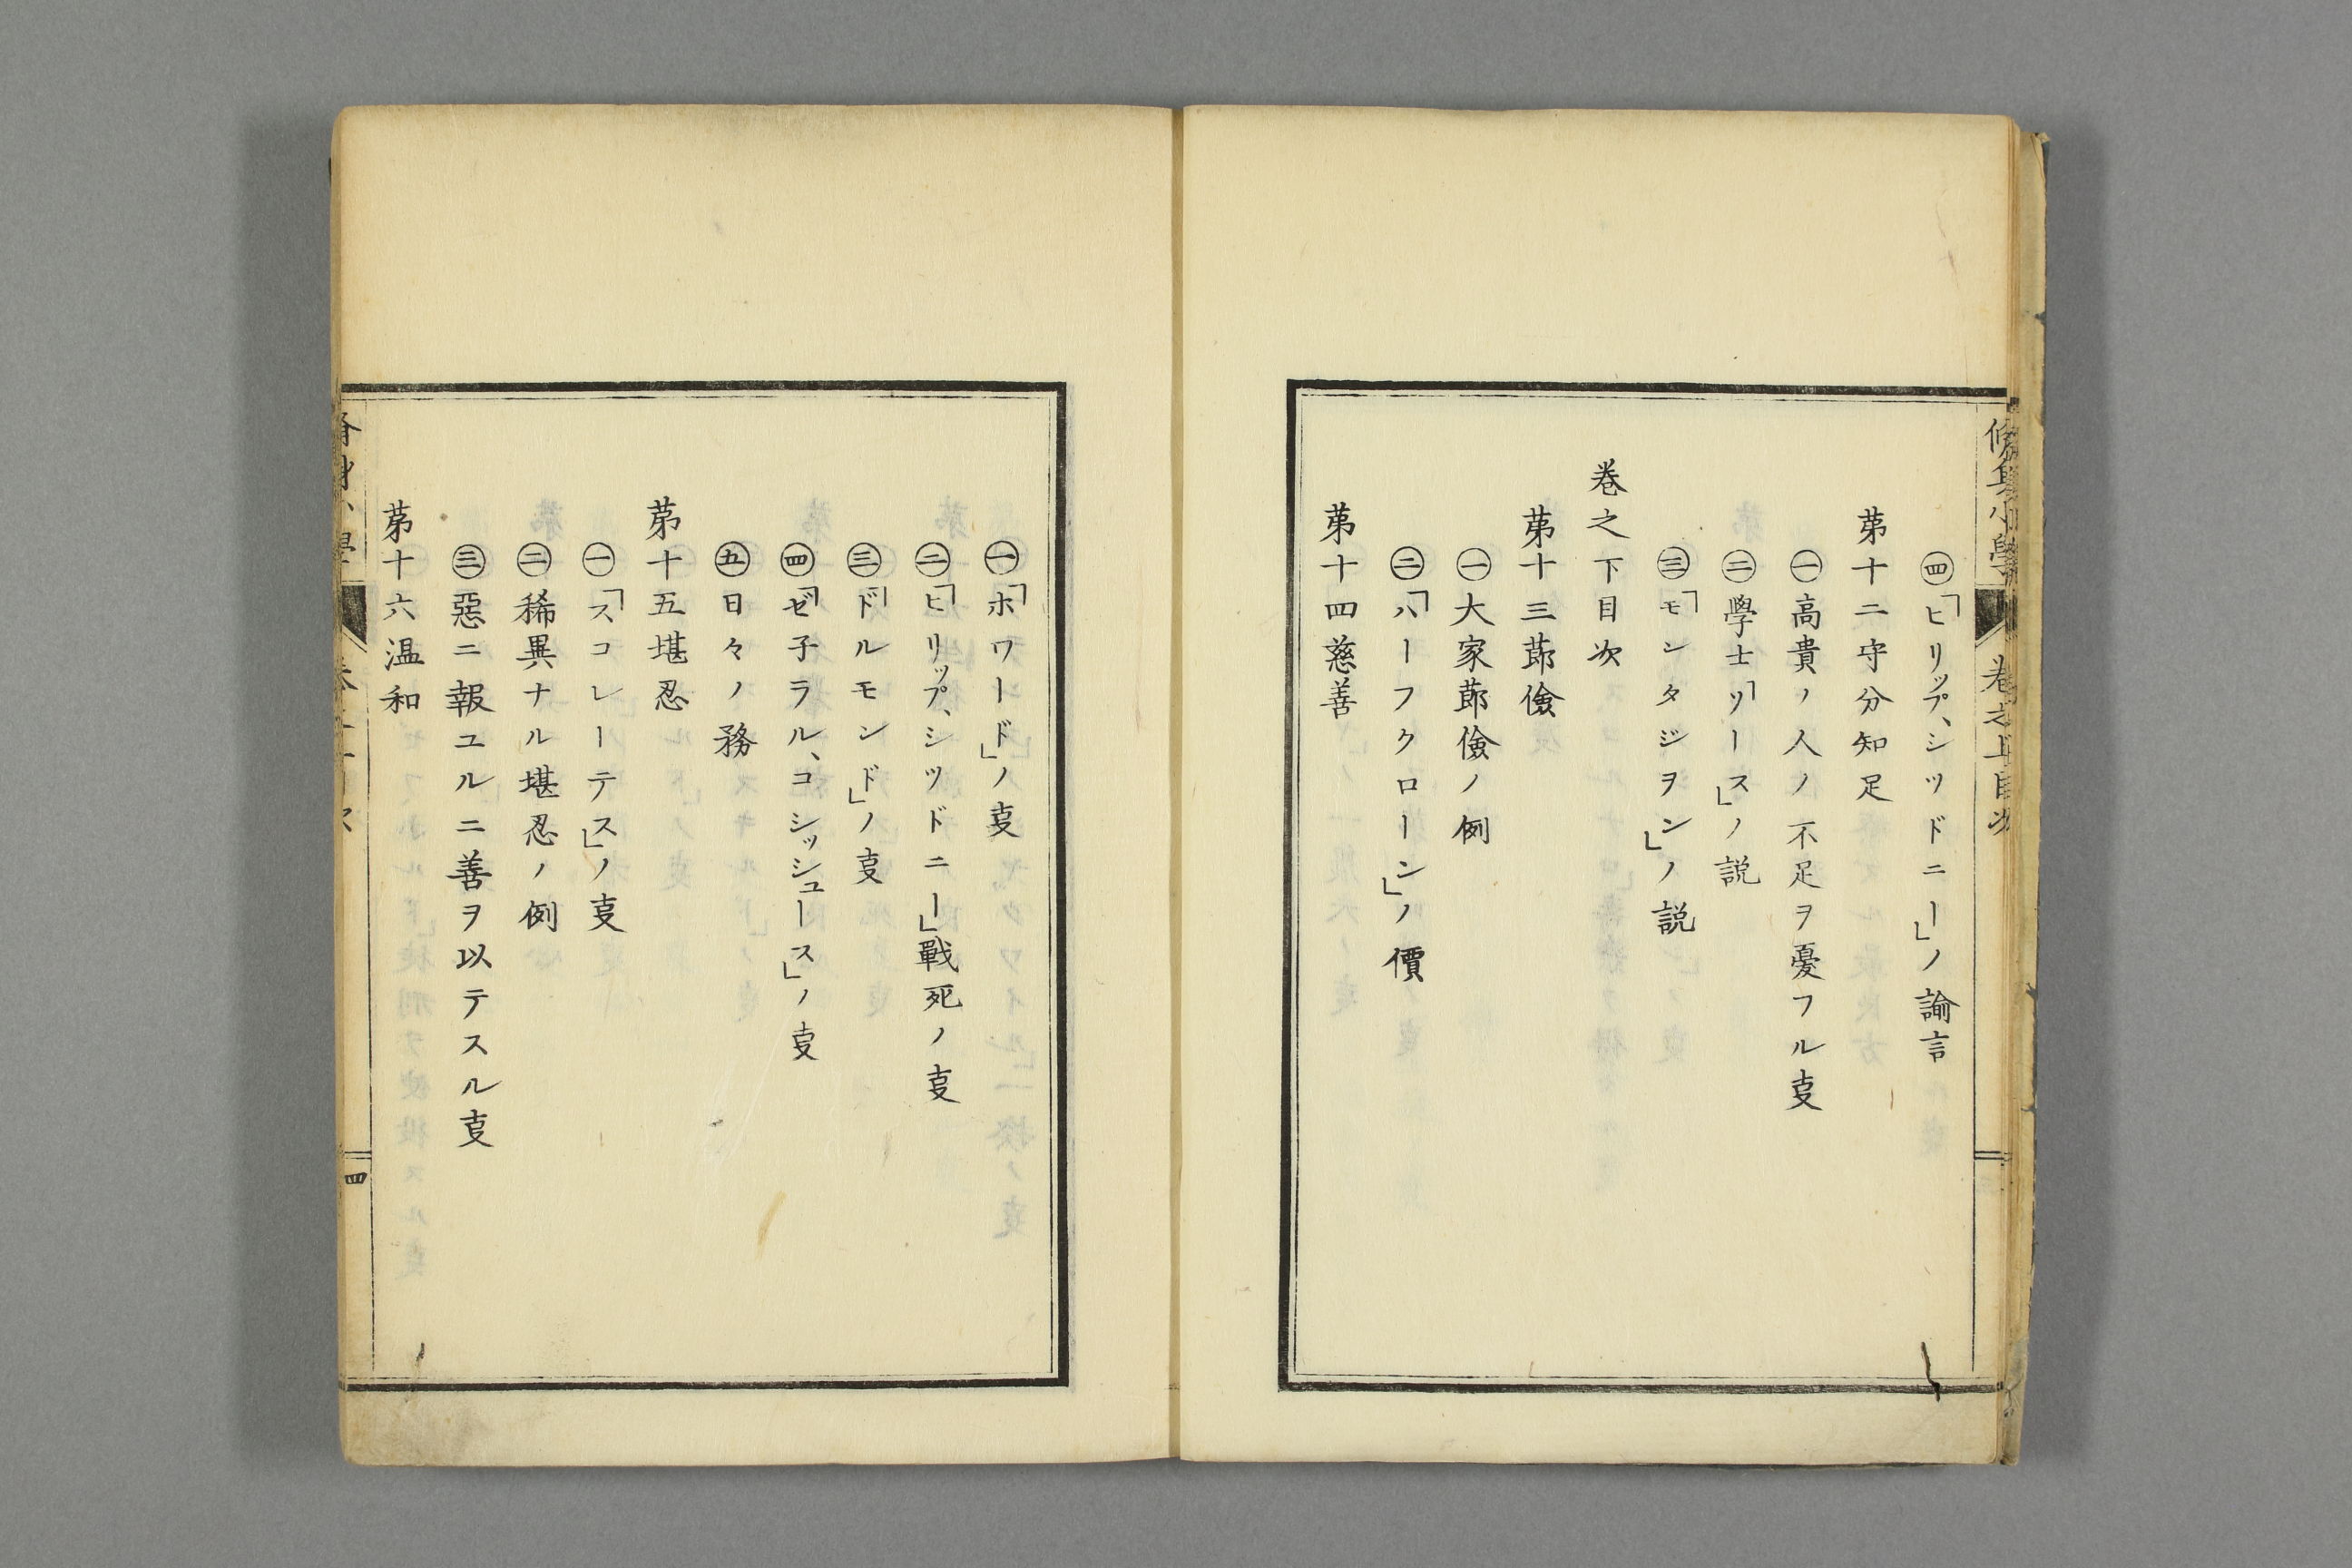 修身小學
卷之上目次
㊃「ヒリップ、シツドニー」ノ諭言
苐十二守分知足
㊀高貴ノ人ノ不足ヲ憂フル㕝
㊁學士「ツース」ノ説
㊂「モンタジヲン」ノ説
卷之下目次
苐十三莭儉
㊀大家莭儉ノ例
㊁「ハーフクローン」ノ價
苐十四慈善
㊀「ホワード」ノ㕝
㊁「ヒリップ、シツドニー」戰死ノ㕝
㊂「ドルモンド」ノ㕝
㊃「ゼ子ラル、コシッシュース」ノ㕝
㊄日々ノ務
苐十五堪忍
㊀「スコレーテス」ノ㕝
㊁稀異ナル堪忍ノ例
㊂惡ニ報ユルニ善ヲ以テスル㕝
苐十六温和
四